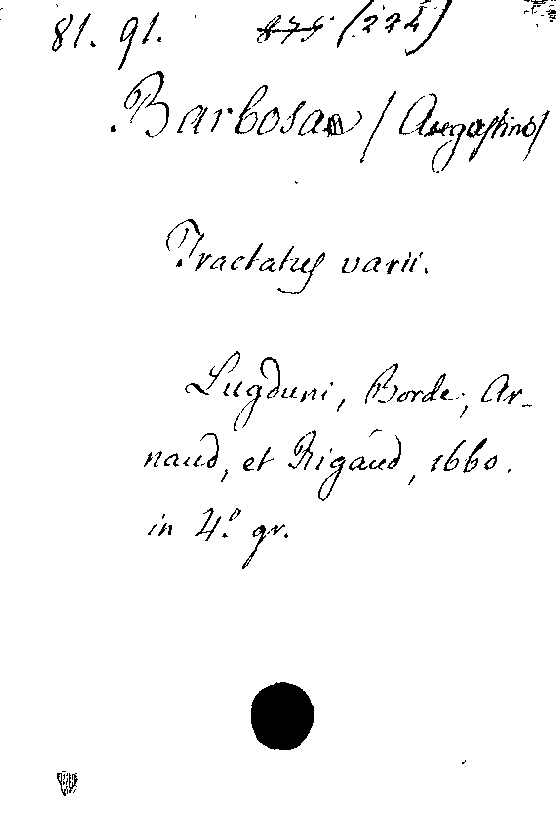 81. 91. 875 (224)
Barbosa / Augustino/
Tractatus varii.
Lugduni, Borde, Ar-
naud, et Rigáud, 1660.
in 4.º gr.